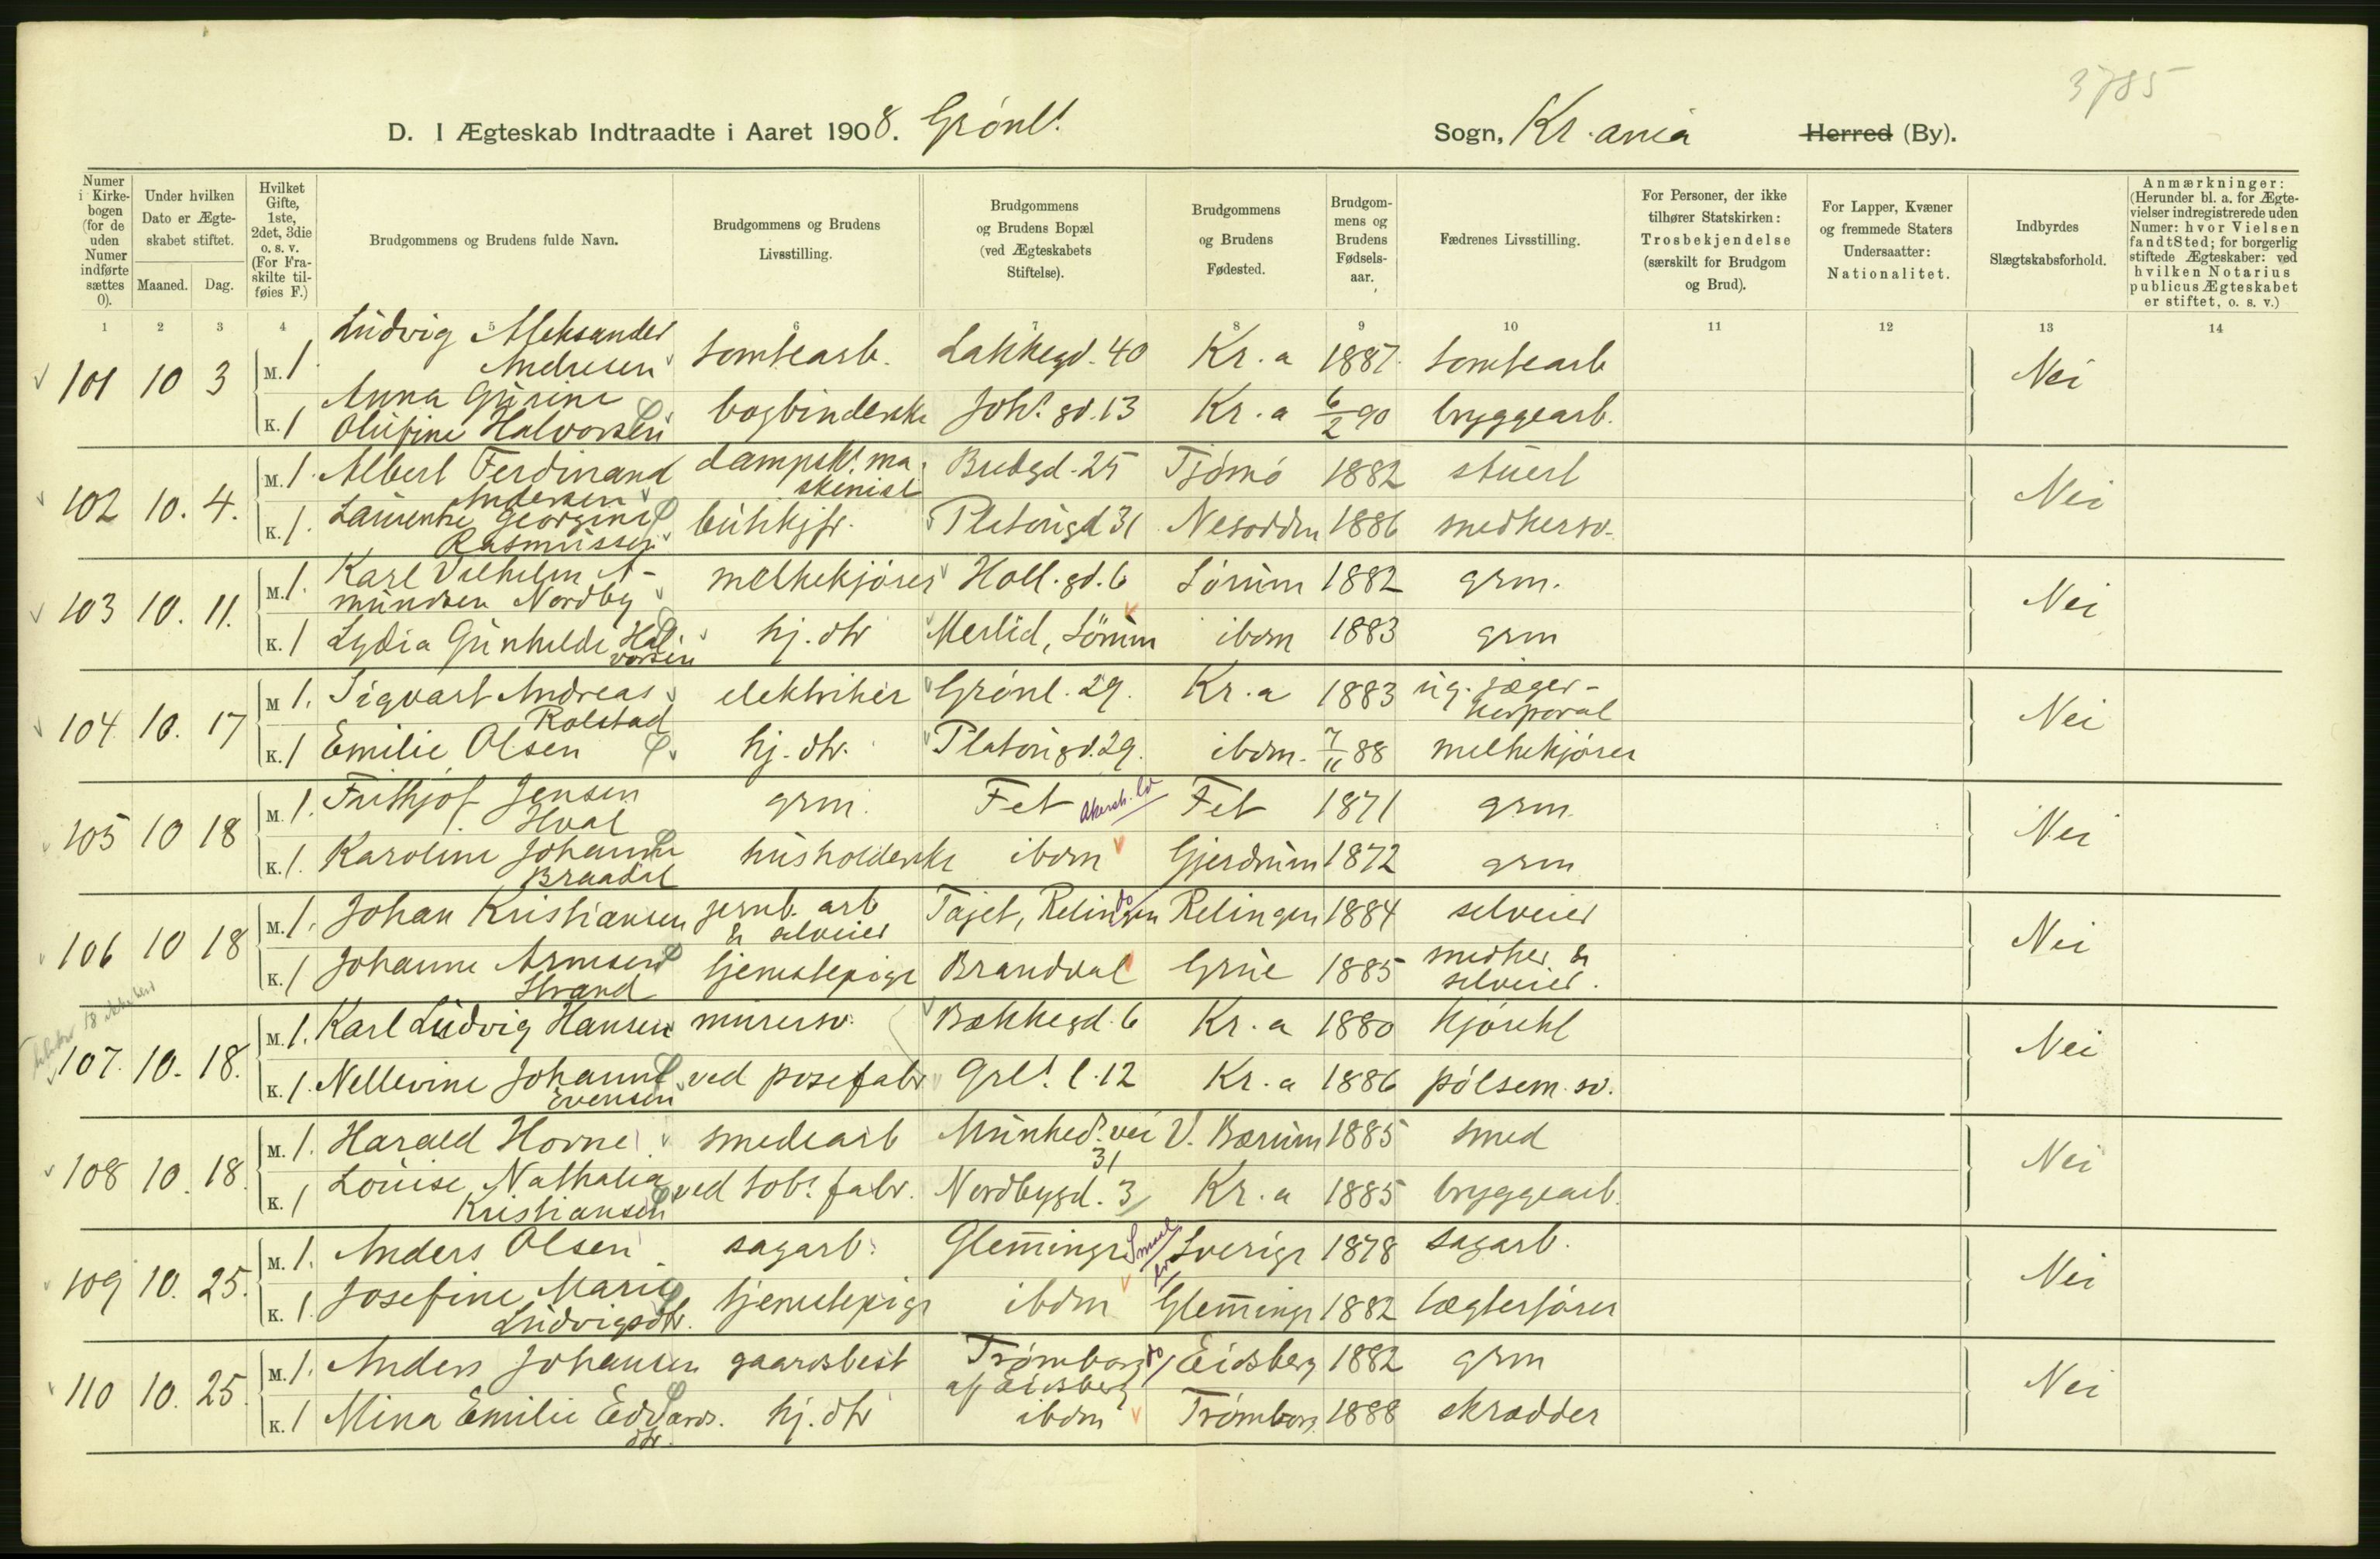 3785
D. I Ægteskab Indtraadte i Aaret 1908. Grønl. Sogn, Kr.ania Herred (By).
Numer i Kirkebogen (for de uden Numer indførte sættes 0).
Under hvilken Dato er Ægteskabet stiftet.
Maaned. Dag.
Hvilket Gifte, 1ste, 2det, 3die o. s. v. (For Fraskilte tilføies F.)
Brudgommens og Brudens fulde Navn.
Brudgommens og Brudens Livsstilling.
Brudgommens og Brudens Bopæl (ved Ægteskabets Stiftelse).
Brudgommens og Brudens Fødested.
Brudgommens og Brudens Fødselsaar.
Fædrenes Livsstilling.
For Personer, der ikke tilhører Statskirken: Trosbekjendelse (særskilt for Brudgom og Brud).
For Lapper, Kvæner og fremmede Staters Undersaatter: Nationalitet.
Indbyrdes Slægtskabsforhold.
Anmærkninger: (Herunder bl. a. for Ægtevielser indregistrerede uden Numer: hvor Vielsen fandt Sted; for borgerlig stiftede Ægteskaber: ved hvilken Notarius publicus Ægteskabet er stiftet, o. s. v.)
1 2 3 4 5 6 7 8 9 10 11 12 13 14
101 10 3 M. 1. Ludvig Aleksander Andresen tomtearb. Lakkegd. 40 Kr.a 1887. tomtearb Nei
K. 1 Anna Gurine Olufine Halvorsen bogbinderske Joh.s gd. 13 Kr.a 6/2 90 bryggearb.
102 10. 4. M. 1. Albert Ferdinand Andersen dampsk. maskinist Brubgd. 25 Tjømø 1882 stuert Nei
K. 1. Laurentse Georgine Rasmussen butikjfr. Platousgd 31 Nesodden 1886 snedkersv.
103 10. 11. M. 1. Karl Vilhelm Amundsen Nordby melkekjører Holl. gd. 6 Sørum 1882 grm. Nei
K. 1 Lydia Gunhilde Halvorsen hj. dtr Merlid, Sørum ibdm 1883 grm
104 10. 17 M. 1. Sigvart Andreas Rolstad elektriker Grønl. 29. Kr.a 1883 ug. jæger-korporal Nei
K. 1 Emilie Olsen hj. dtr. Platousgd. 29. ibdm. 7/11 88 melkekjører
105 10 18 M. 1. Frithjof Jensen Hval grm. Fet Akersh. Fet 1871 grm. Nei
K. 1. Karoline Johanne Braadal husholderske ibdm Gjerdrum 1872 grm
106 10 18 M. 1. Johan Kristiansen jernb. arb & selveier Tajet, Relingen do Relingen 1884 selveier Nei
K. 1 Johanne Arnesen Strand tjenestepige Brandval Grue 1885 snedker & selveier.
107. 10. 18. M. 1. Karl Ludvig Hansen murersv. Bakkegd. 6 Kr.a 1880 kjørekl Nei
K. 1. Nellevine Johanne Evensen ved posefabr Grl. l. 12 Kr.a 1886 pølsem. sv.
108 10. 18. M. 1. Harald Horne smedearb Munked. vei 31 V. Bærum 1885 smed Nei
K. 1 Louise Nathalia Kristiansen ved tob. fabr. Nordbygd. 3 Kr.a 1885 bryggearb.
109 10. 25. M. 1. Anders Olsen sagarb. Glemminge Smaal. Sverige 1878 sagarb. Nei
K. 1. Josefine Marie Ludvigsdtr. tjenestepige ibdm Glemminge 1882 lægterfører
110 10. 25. M. 1. Anders Johansen gaardsbest Trømborg af Eidsberg do Eidsberg 1882 grm Nei
K. 1 Mina Emilie Edvardsdtr. hj. dtr ibdm Trømborg 1888 skrædder